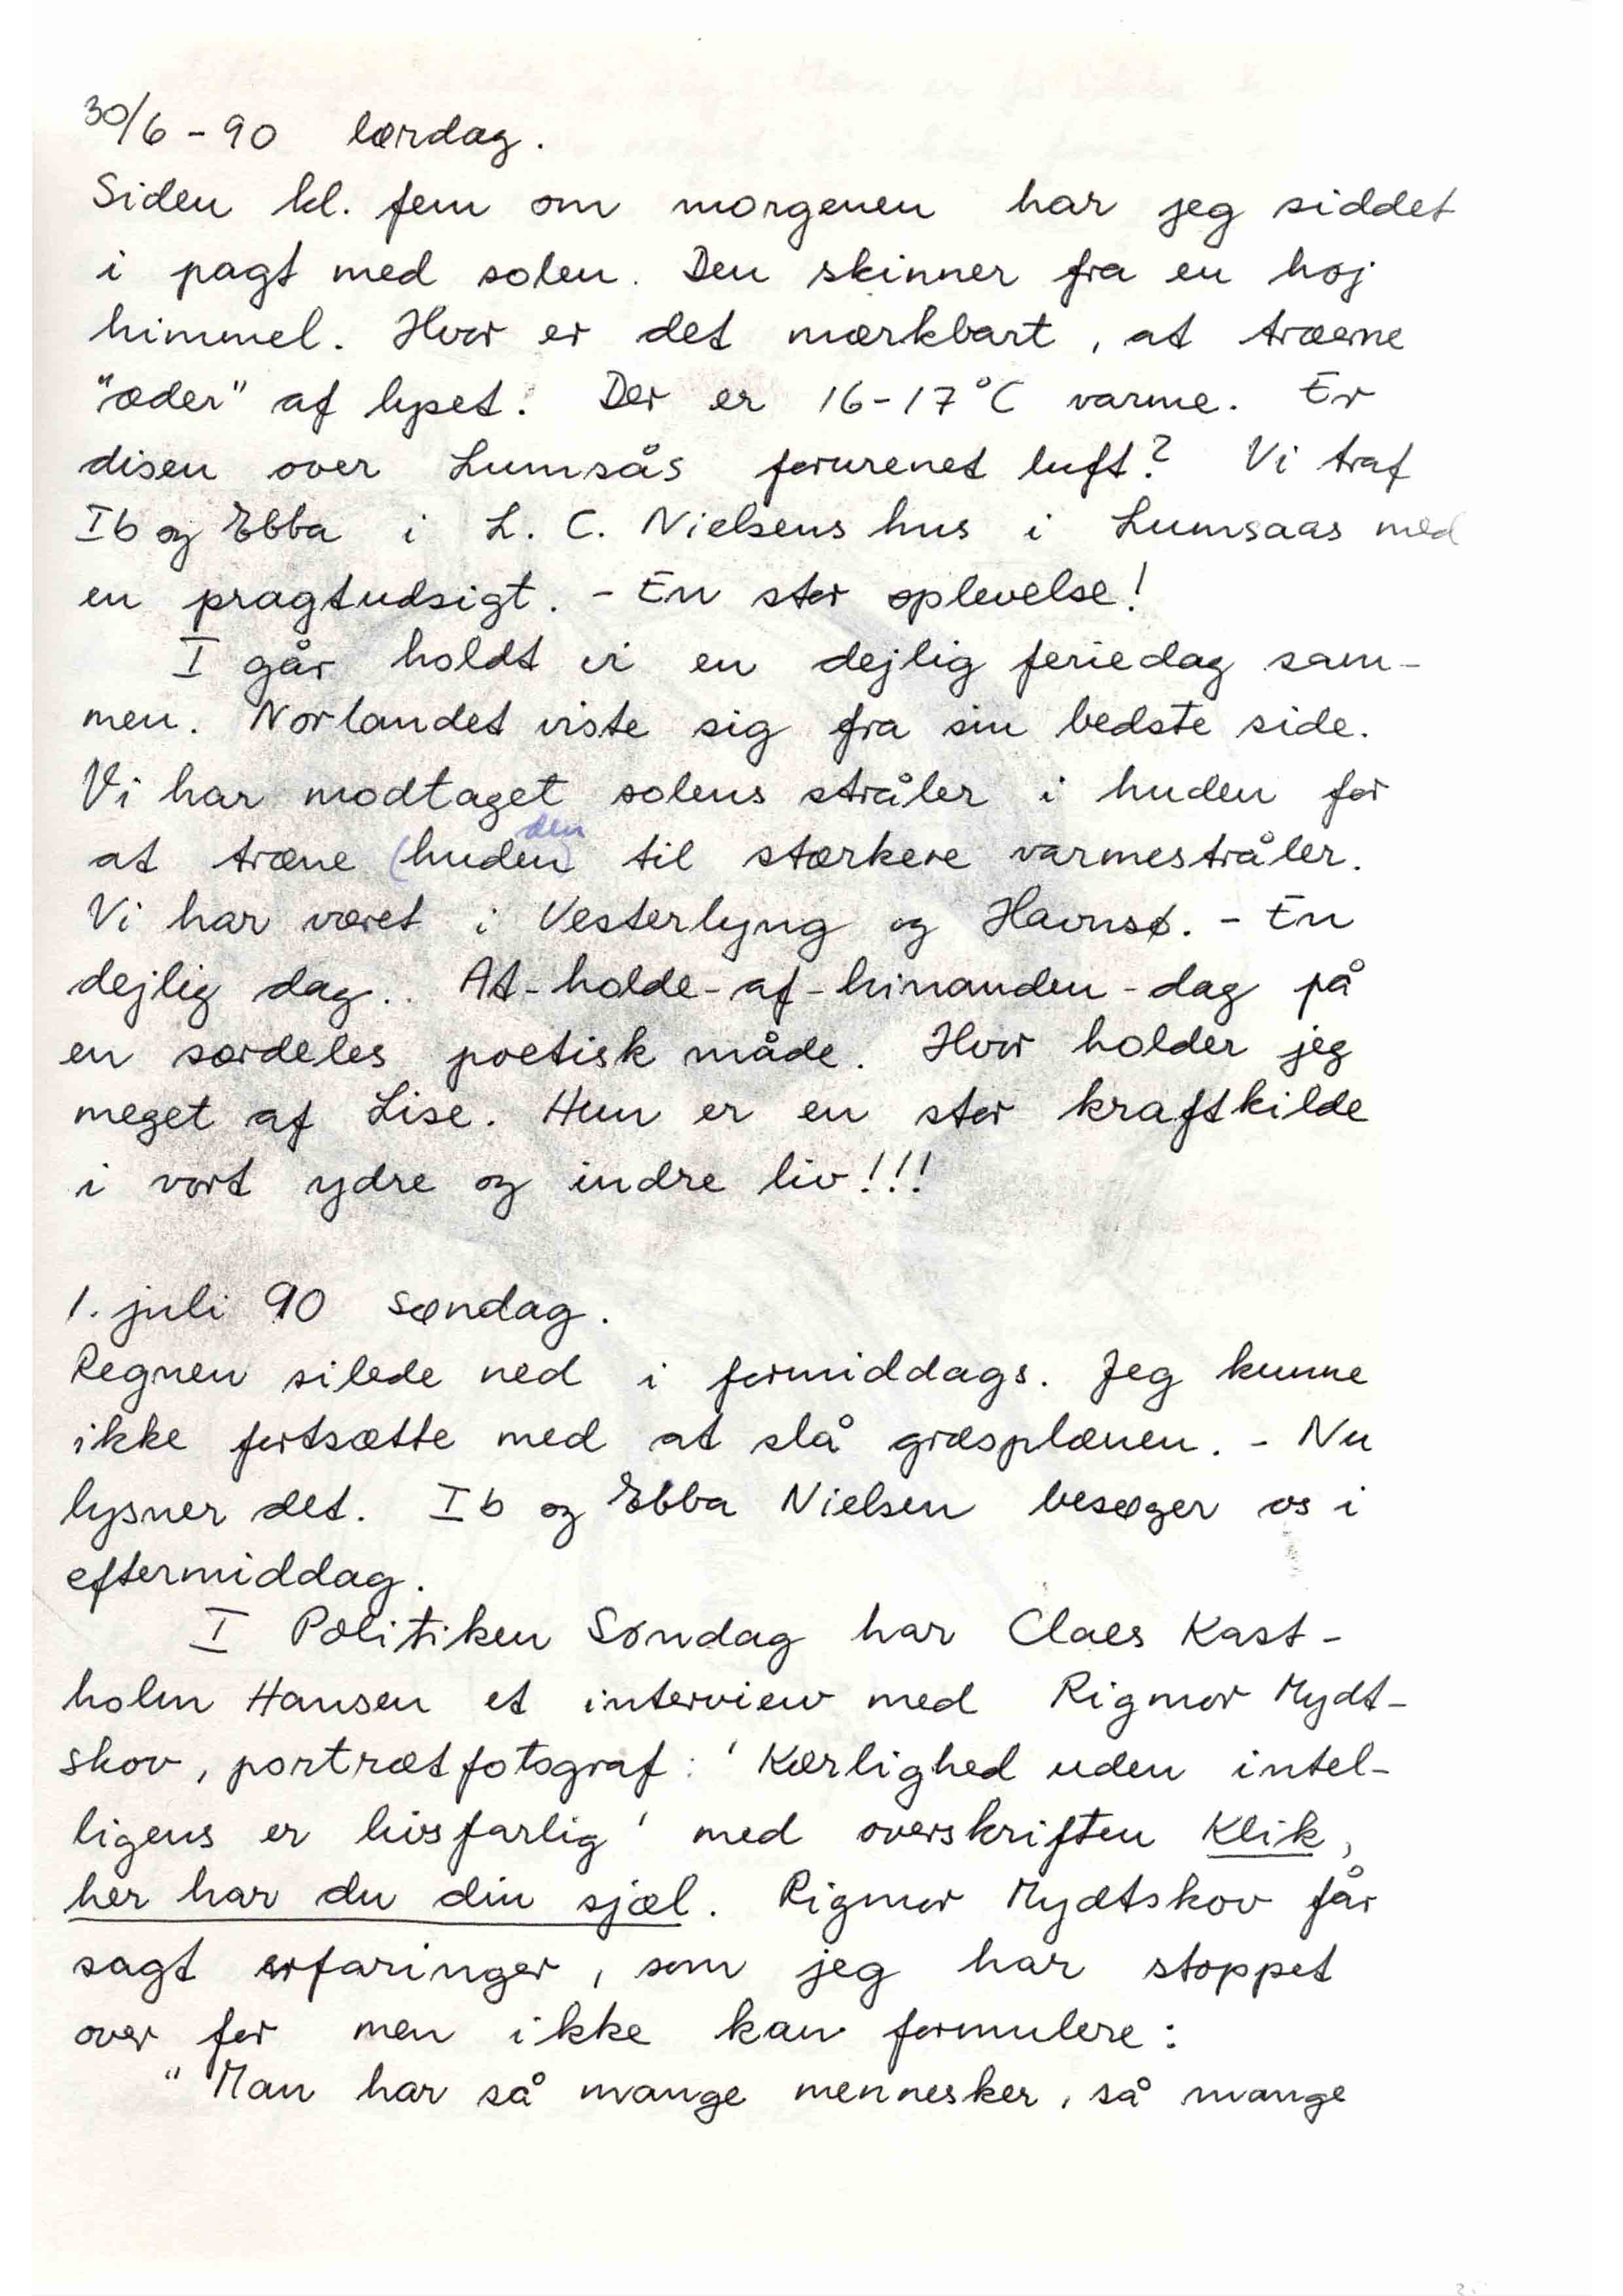 30/6 - 90 lørdag.
Siden kl. fem om morgenen har jeg siddet
i pagt med solen. Den skinner fra en høj
himmel. Hvor er det mærkbart, at træerne
"æder" af lyset. Der er 16-17°C varme. Er
disen over Lumsås forurenet luft? Vi traf
Ib og Ebba i L. C. Nielsens hus i Lumsaas med
en pragtudsigt. - En stor oplevelse!
I går holdt vi en dejlig feriedag sam-
men. Norlandet viste sig fra sin bedste side.
Vi har modtaget solens stråler i huden for
den
at træne (huden) til stærkere varmestråler.
Vi har været i Vesterlyng og Havnsø. - En
dejlig dag.. At-holde-af-hinanden-dag på
en særdeles poetisk måde. Hvor holder jeg
meget af Lise. Hun er en stor kraftkilde
i vort ydre og indre liv!!!
1. juli 90 søndag.
Regnen silede ned i formiddags. Jeg kunne
ikke fortsætte med at slå græsplænen. - Nu
lysner det. Ib og Ebba Nielsen besøger os i
eftermiddag.
I Politiken Søndag har Claes Kast-
holm Hansen et interview med Rigmor Mydt-
skov, portrætfotograf: 'Kærlighed uden intel-
ligens er livsfarlig' med overskriften Klik,
her har du din sjæl. Rigmor Mydtskov får
sagt erfaringer, som jeg har stoppet
over for men ikke kan formulere:
"Man har så mange mennesker, så mange